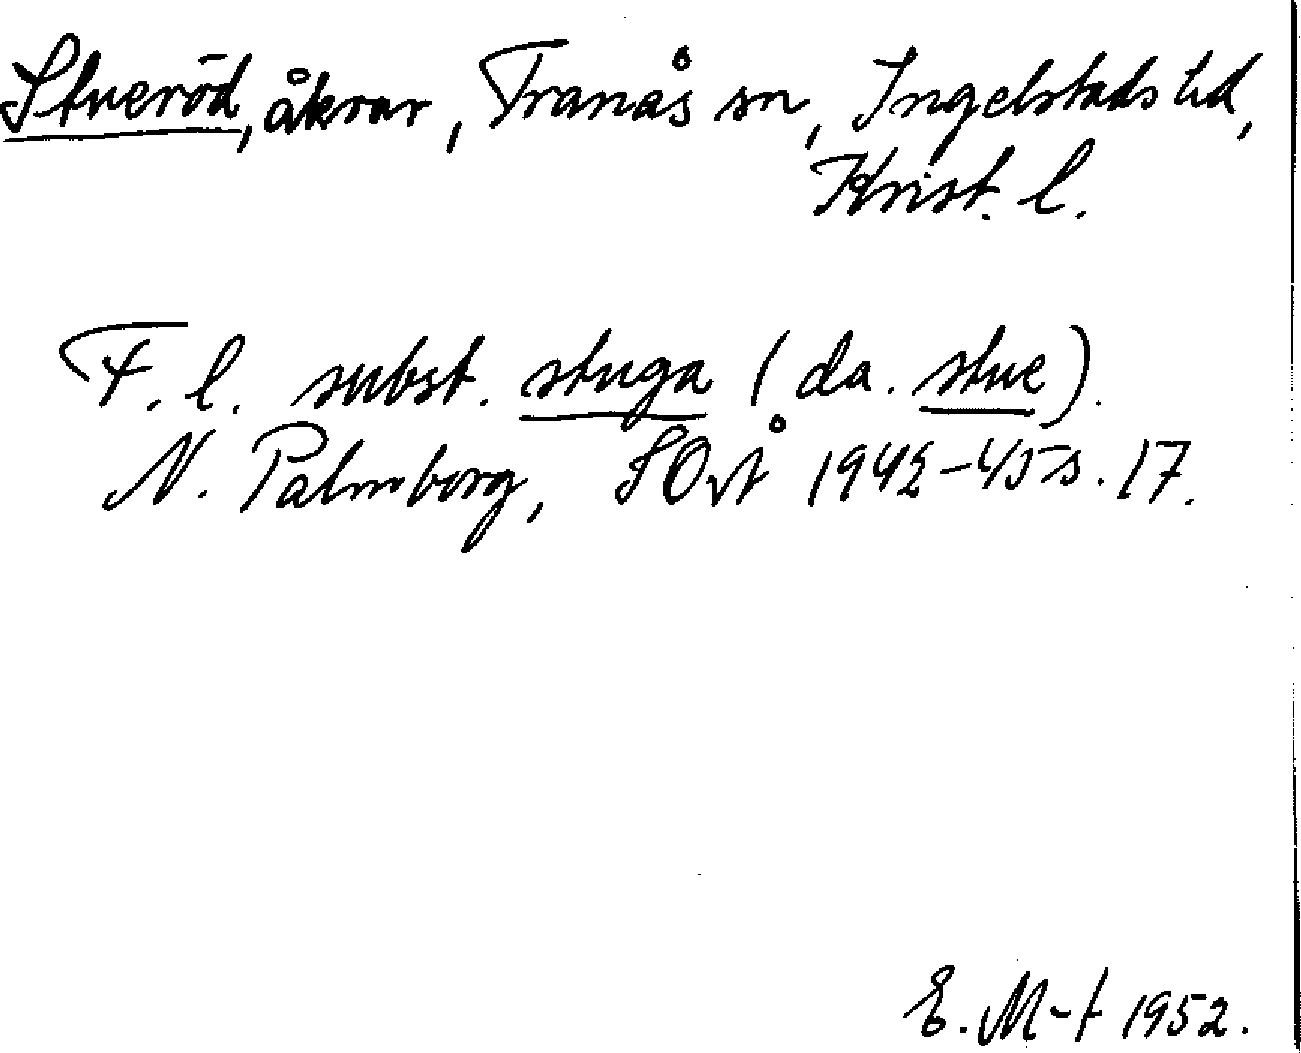 Stueröd, åkrar, Tranås sn, Ingelstads hd,
Krist. l.
F. l. subst. stuga (da. stue).
N. Palmborg, SOrtÅ 1942-45 s. 17.
E. M-t 1952.